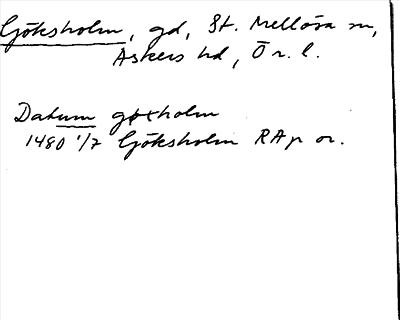 Göksholm, gd, St. Mellösa sn,
Askers hd, Ör. l.
Datum gøxholm
1480 1/7 Göksholm RAp or.